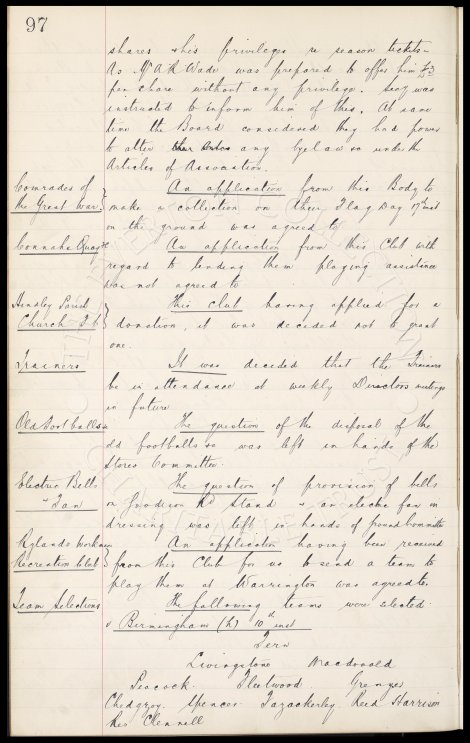 97
shares & his privileges re season tickets -
As Mr A R Wade was prepared to offer him £3
per share without any privilege. Secy was
instructed to inform him of this. At same
time the Board considered they had power
to alter any byelaws under the
Articles of Association.
Comrades of the Great War. An application from this Body to
make a collection on their Flag Day 17th inst
on the ground was agreed to
Connahs Quay An application from this Club with
regard to lending them playing assistance
was not agreed to
Hindley Parish Church F.C. This club having applied for a
donation, it was decided not to grant
one.
Trainers It was decided that the Trainers
be in attendance at weekly Directors meetings
in future
Old Footballs The question of the disposal of the
old footballs was left in hands of the
Stores Committee.
Electric Bells & Fan The question of provision of bells
in Goodison Rd Stand & an electric fan in
dressing was left in hands of ground Committee
Rylands Workmen Recreation Club An application having been received
from this Club for us to send a team to
play them at Warrington was agreed to.
Team Selections The following teams were selected.
v Birmingham (h) 10th inst
Fern
Livingstone Macdonald
Peacock Fleetwood Grenyer
Chedgzoy Spencer Fazackerley Reid Harrison
Res Clennell